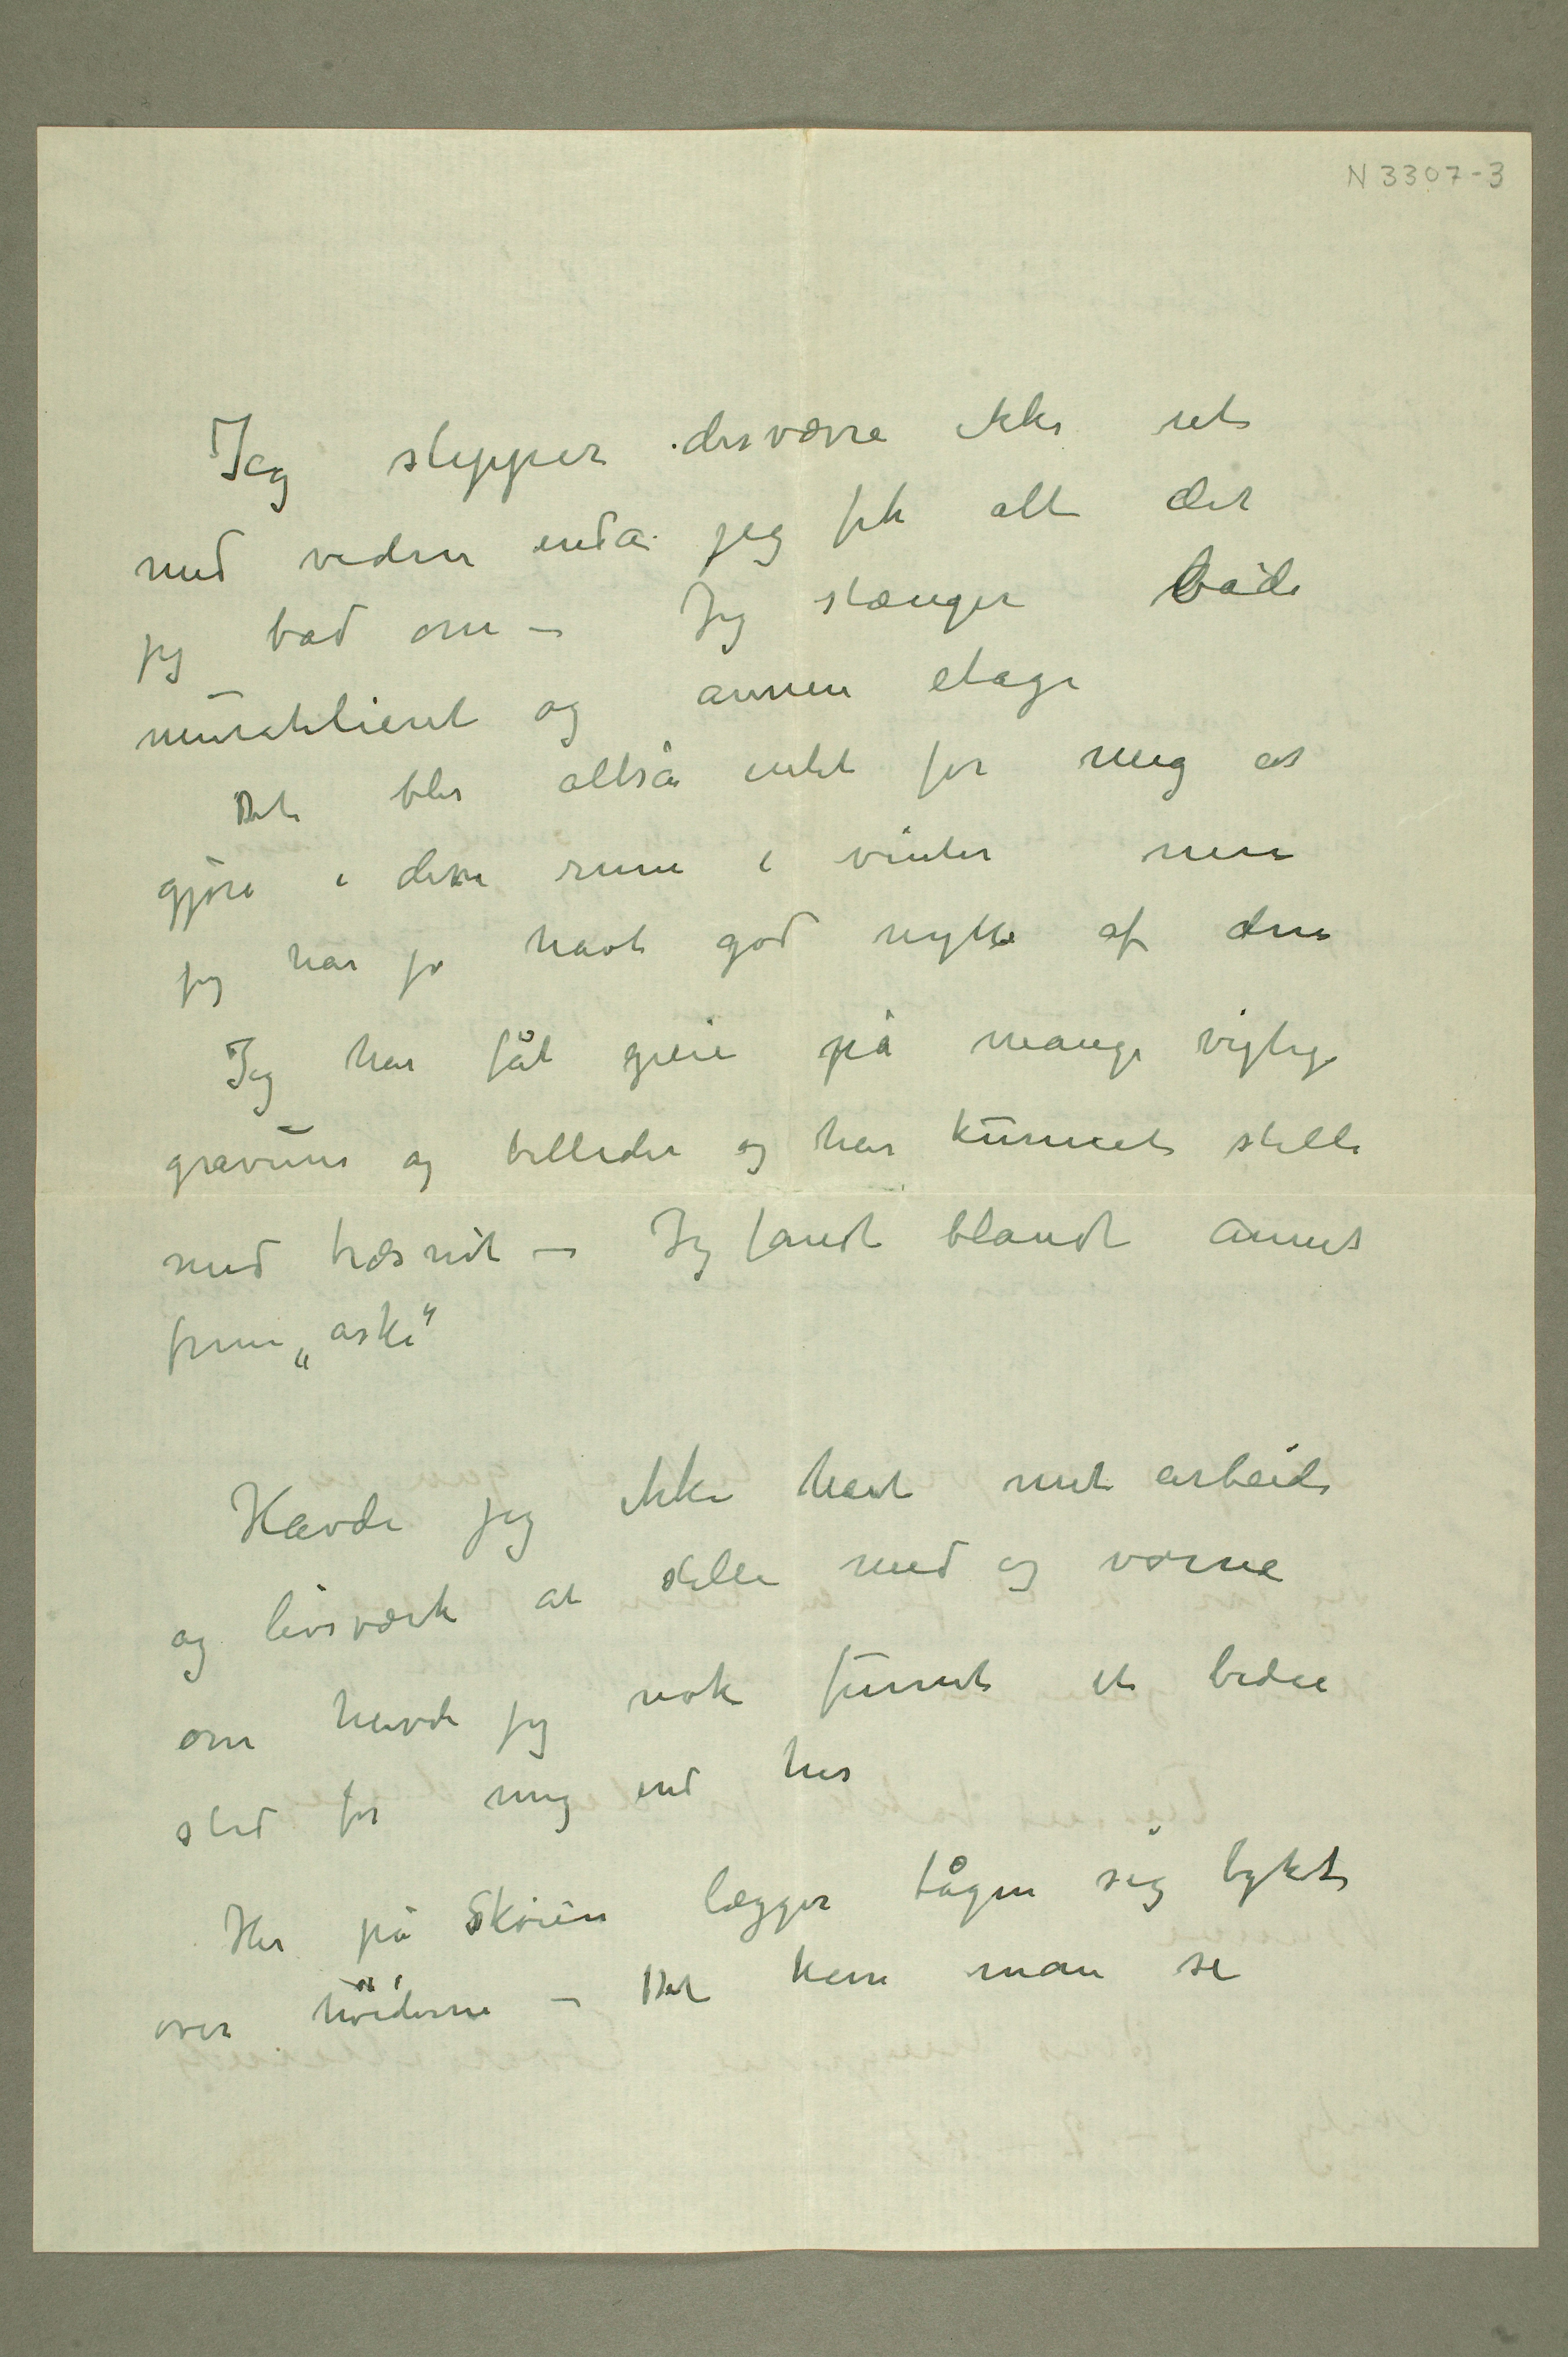 N 3307-3
Jeg slipper desværre ikke ut
med veden enda jeg fik alt det
jeg bad om – Jeg stænger både
muratelieret og annen etage
Det blir altså intet for mig at
gjøre i dem rum i vinter men
jeg har jo havt god nytte af dem
Jeg har fåt greie på mange vigtige
gravurer og billeder og har kunnet stelle
med træsnit – Jeg fandt blandt annet
frem „aske“
Havde jeg ikke havt mit arbeide
og livsværk at stelle med og værne
om havde jeg nok funnet et bedre
sted for mig end her
Her på Skøien lægger tågen sig tykt
over høiderne – Det kan man se